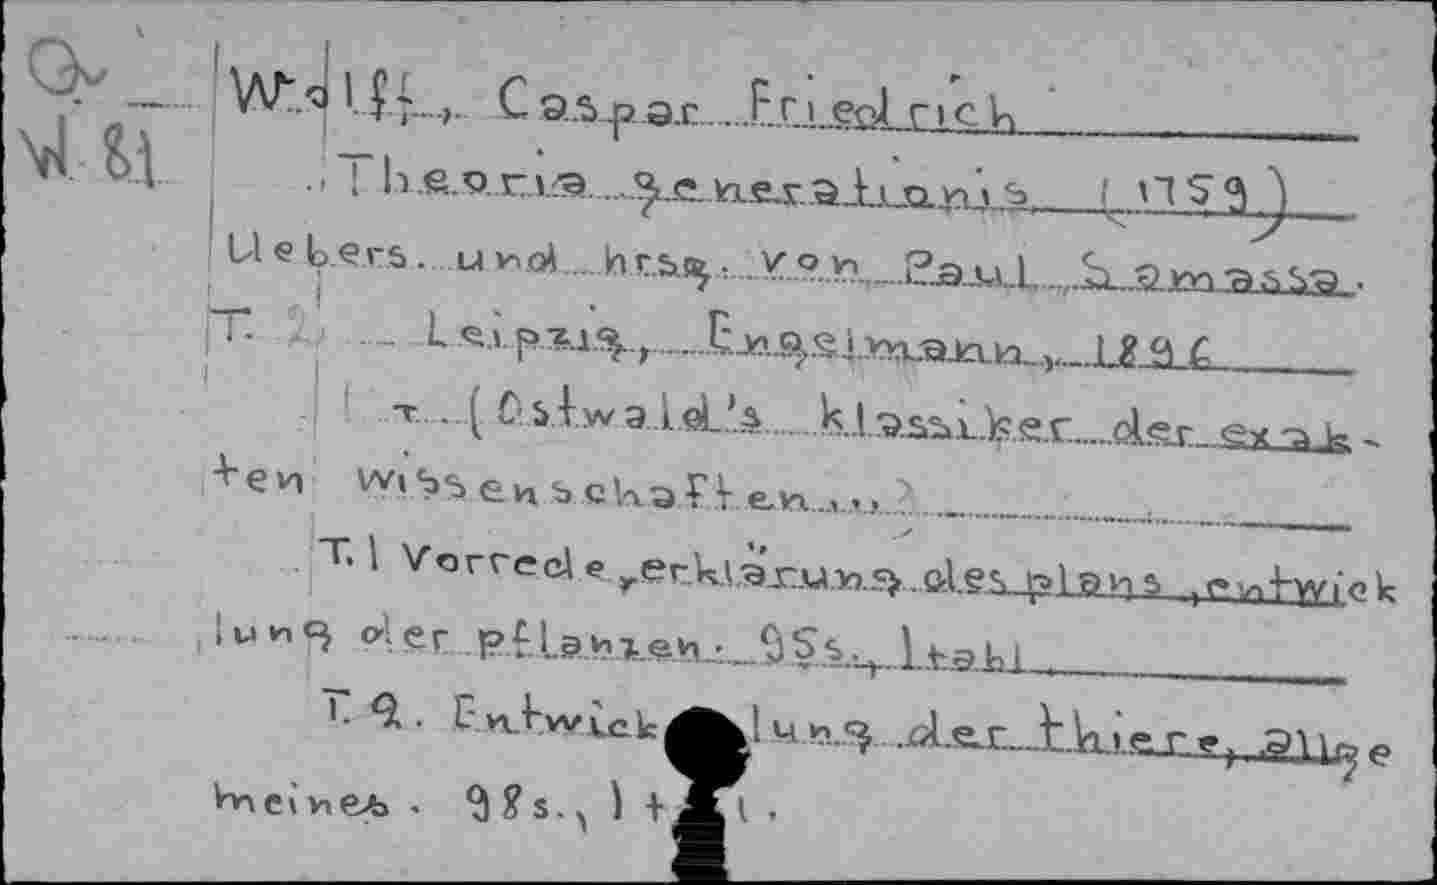 Wolff, Caspar Friedrich
Theoria generationis (1759)
Uebers. und hrsg. von Paul Samassa.
T. Leipzig, Engelmann, 1896
(Ostwald's klassiker der exak-
ten wissenschaften...)
T. 1 Vorrede, erklärung des plans, entwick
lung der pflanzen. 95s., 1 tabl.
T. 2. Entwicklung der thiere, allge
meines. 98s., 1 t